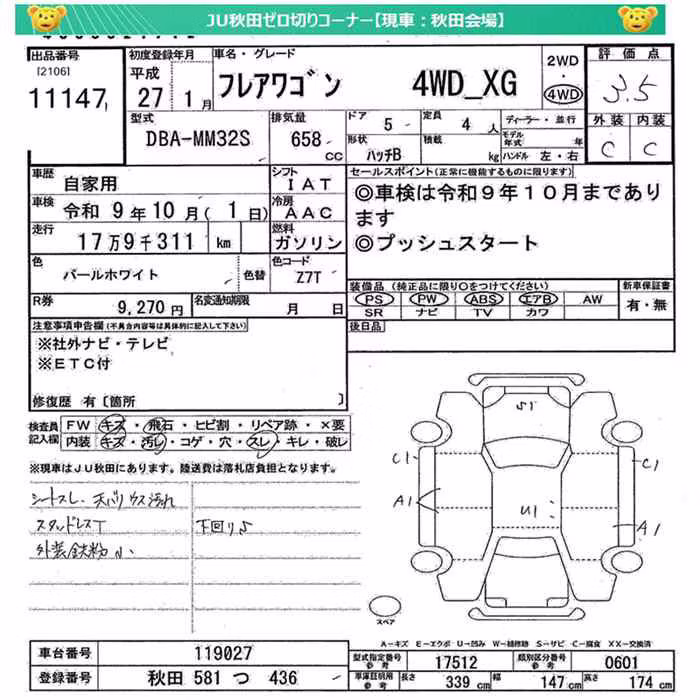 JU秋田ゼロ切りコーナー【現車:秋田会場】
出品番号 [2106] 11147
初度登録年月 平成 27年 1月
車名・グレード フレアワゴン 4WD_XG
2WD ・ 4WD
評価点 3.5
外装 内装
C C
型式 DBA-MM32S
排気量 658 CC
ドア 5
定員 4 人
形状 ハッチB
積載 kg
ディーラー・並行
モデル年式 年
ハンドル 左・右
車歴 自家用
シフト IAT
車検 令和 9年 10月(1日)
冷房 AAC
走行 17万9千311 km
燃料 ガソリン
色 パールホワイト 色替
色コード Z7T
R券 9,270円
名変通知期限 月 日
セールスポイント(正常に機能するものに限ります)
◎車検は令和9年10月まであり
ます
◎プッシュスタート
装備品(純正品に限り○をつけてください)
PS PW ABS エアB AW
SR ナビ TV カワ
新車保証書
有・無
後日品
注意事項申告欄(不具合内容等は具体的に記入して下さい)
※社外ナビ・テレビ
※ETC付
修復歴 有〔箇所 〕
検査員記入欄
FW キズ・飛石・ヒビ割・リペア跡・×要
内装 キズ・汚レ・コゲ・穴・スレ・キレ・破レ
※現車はJU秋田にあります。陸送費は落札店負担となります。
シートスレ・天バリウス汚れ
スタッドレスT 下回りS
外装鉄粉小
S1
C1 C1
A1 U1 A1
スペア
A-キズ E-エクボ U-凹み W-補修跡 S-サビ C-腐食 XX-交換済
車台番号 119027
登録番号 秋田 581 つ 436
型式指定番号参考 17512
類別区分番号参考 0601
車庫証明用参考 長さ 339 cm 幅 147 cm 高さ 174 cm